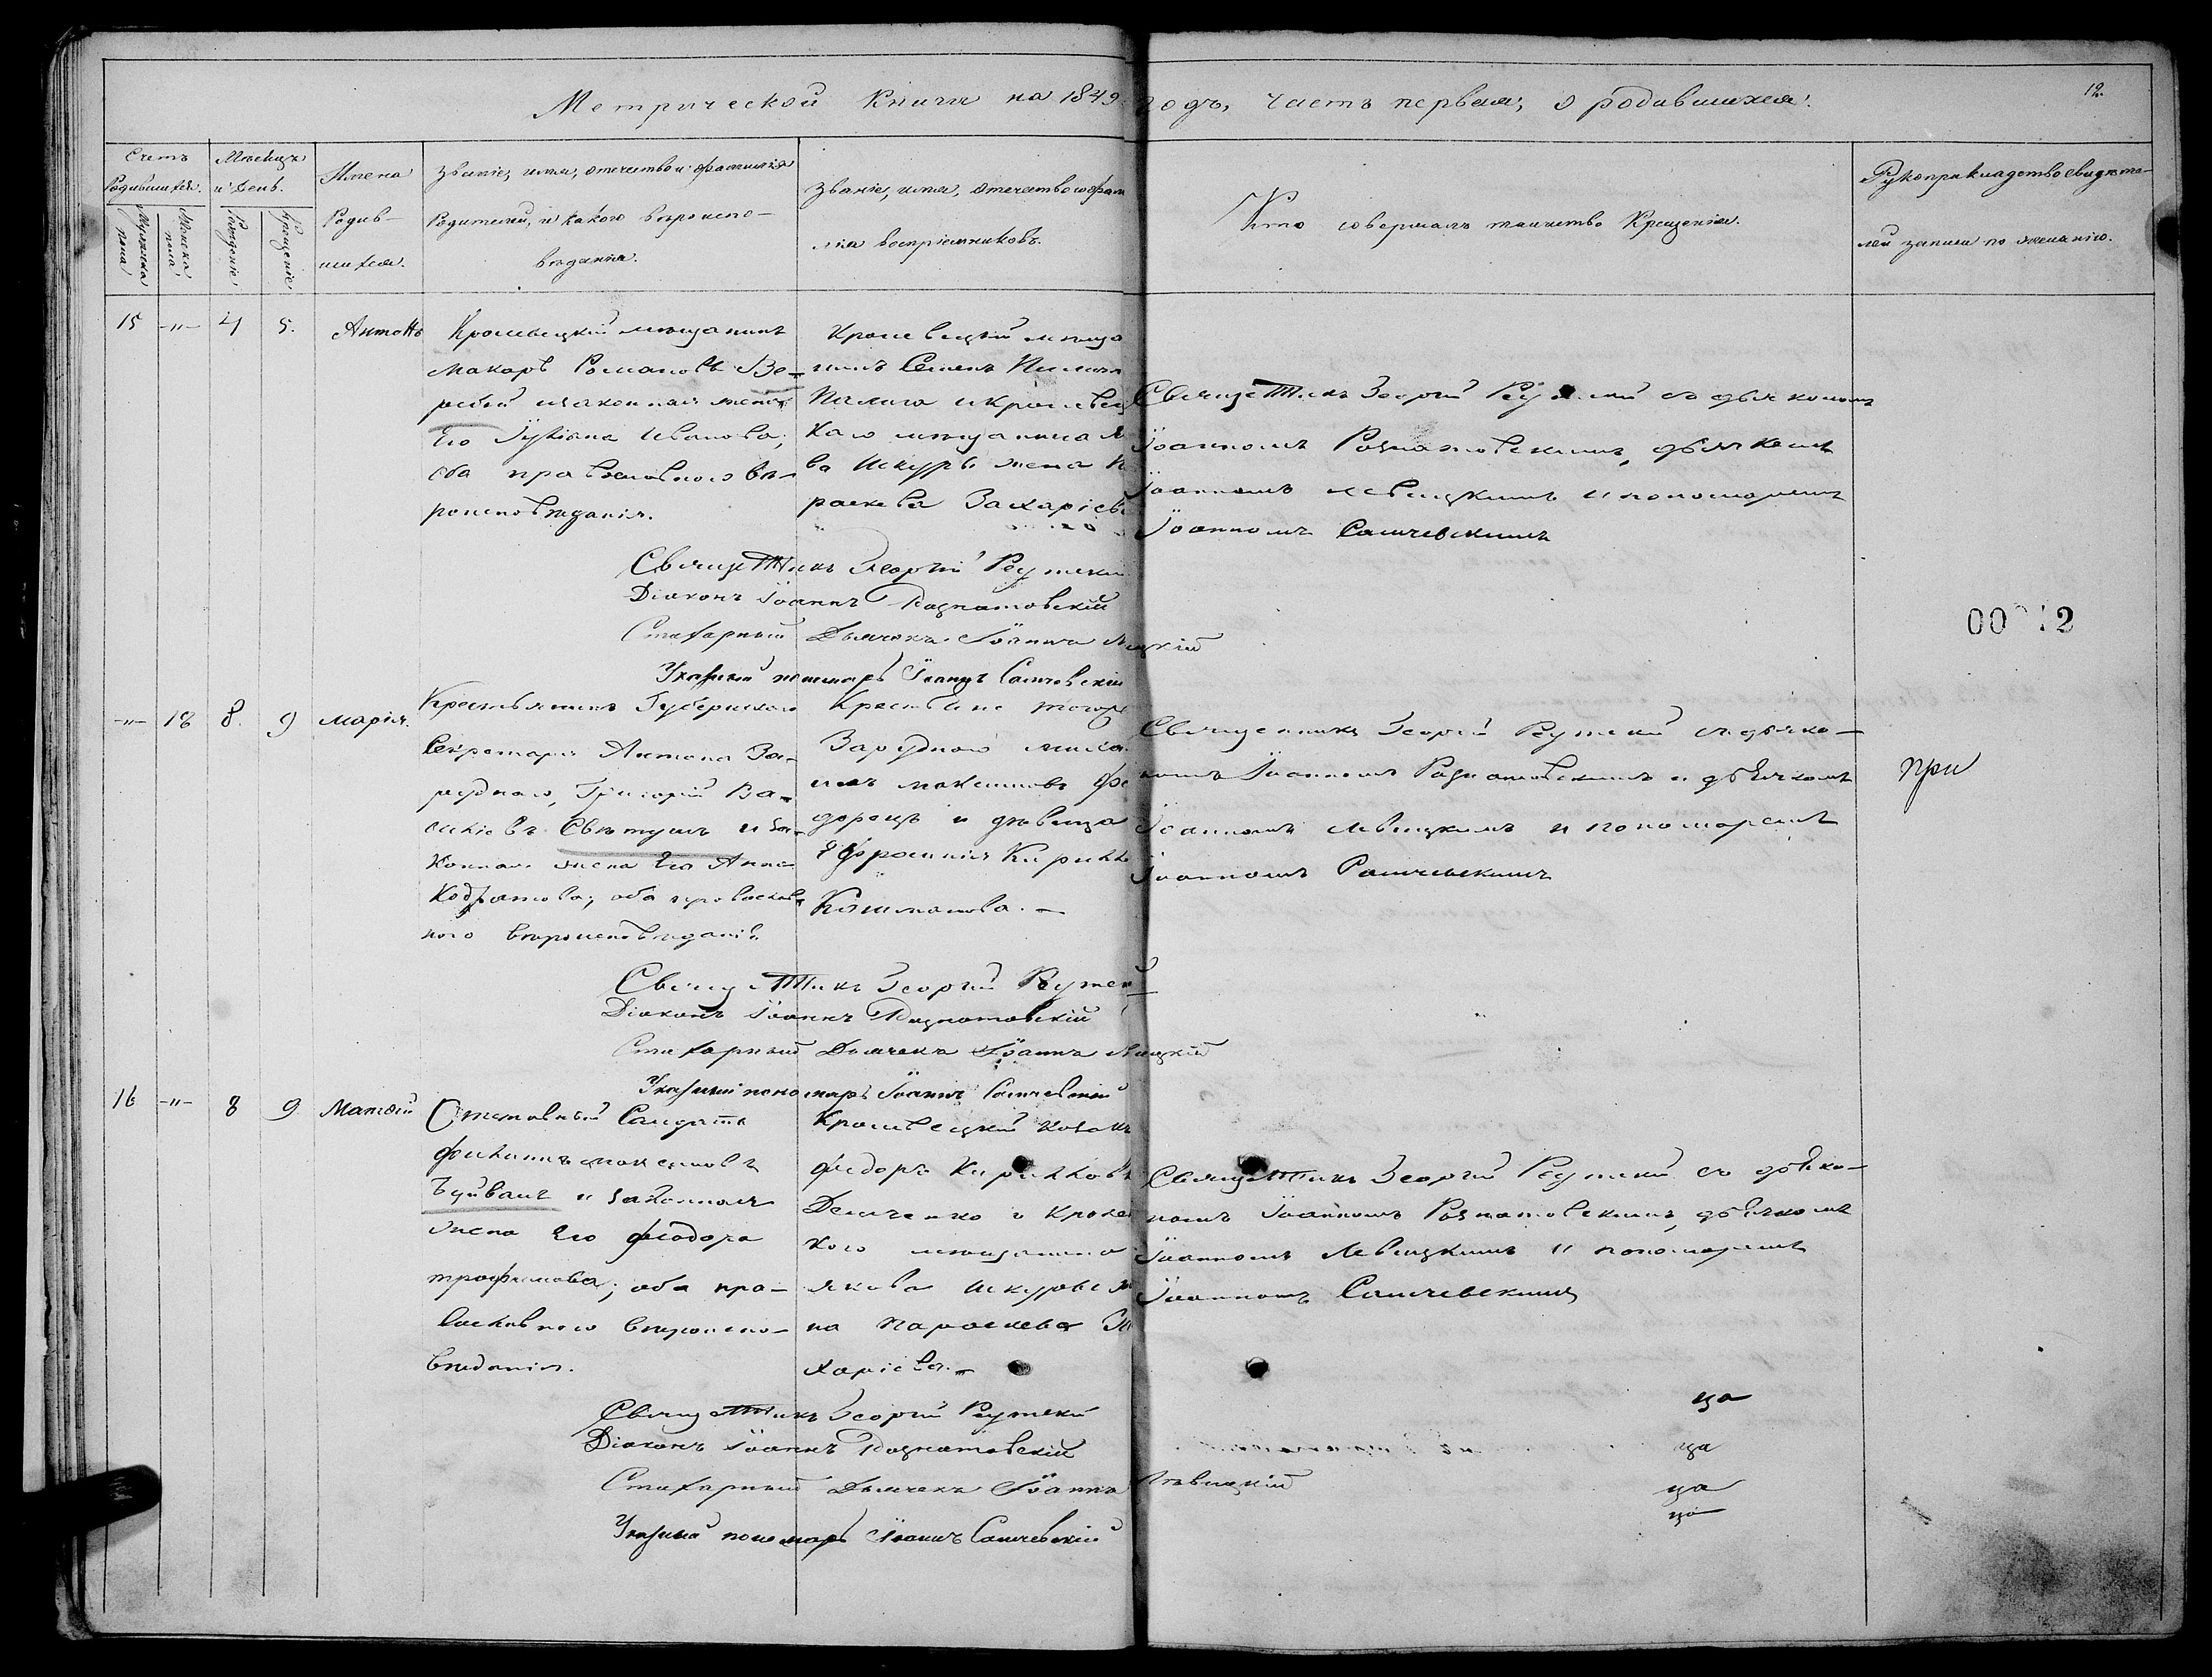 Метрической Книги на 1849 годъ, часть первая, о родившихся.
12.
Счетъ Родившихся.
Мужеска пола
Женска пола
Мѣсяцъ и день.
Рожденіе
Крещеніе
Имена
Родив-
шихся.
Званіе, имя, отечество и фамилія
Родителей, и какого вѣроиспо-
вѣданія.
Званіе, имя, отечество и фам
лія воспріемниковъ.
Кто совершалъ таинство Крещенія.
Рукоприкладство свидѣте-
лей записи по желанію.
15 -"- 4 5. Антонъ
Кролевецкій мѣщанинъ
Макаръ Романовъ
законная жена
его Іуліана Иванова,
оба православного вѣ-
роисповѣданія.
Кролевецкій мѣща
нинъ Семенъ
Палига и кролевец
каго мѣщанина Я
ва Шкуры жена П
раскева Захаріев
Священникъ Георгій Рутскій съ діякономъ
Іоанномъ Рознатовскимъ, дьячкомъ
Іоанномъ Левицкимъ и пономаремъ
Іоанномъ Самчевскимъ
Священникъ Георгій Рутскій
Діаконъ Іоаннъ Рознатовскій
Стихарный Дьячекъ Іоаннъ Левицкій
Указный пономарь Іоаннъ Самчевскій
00012
-"- 18 8. 9 Марія.
Крестьянинъ Губернскаго
Секретаря Антона За-
руднаго, Григорій Ва-
силіевъ и за-
конная жена его Анна
Кодратова; оба православ
ного вѣроисповѣданія.
Крестьяне тогоже
Заруднаго Миха
илъ Максимовъ Фе
дорецъ и дѣвица
Ефросинія Кирилл
Кошманова. —
Священникъ Георгій Рутскій съ діяко-
номъ Іоанномъ Рознатовскимъ и дьячкомъ
Іоанномъ Левицкимъ и пономаремъ
Іоанномъ Самчевскимъ
при
Священникъ Георгій Рутскій
Діаконъ Іоаннъ Рознатовскій
Стихарный Дьячекъ Іоаннъ Левицкій
Указный пономарь Іоаннъ Самчевскій
16 -"- 8 9 Матѳій
Отставный Салдатъ
Филипъ Максимовъ
и законная
жена его Феодора
Трофимова; оба пра-
вославного вѣроиспо-
вѣданія.
Кролевецкій козакъ
Федоръ Кирилловъ
Демченко и Кролев
кого мѣщанина
Якова Шкуры же
на Параскева За
харіева. —
Священникъ Георгій Рутскій съ діяко-
номъ Іоанномъ Рознатовскимъ, дьячкомъ
Іоанномъ Левицкимъ и пономаремъ
Іоанномъ Самчевскимъ
Священникъ Георгій Рутскій
ца
Діаконъ Іоаннъ Рознатовскій
ца
Стихарный Дьячекъ Іоаннъ Левицкій
ца
Указный пономарь Іоаннъ Самчевскій
ца